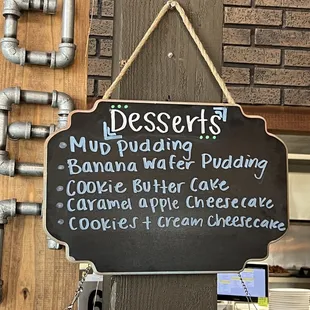 Desserts
• MUD PUDDING
• Banana Wafer Pudding
• COOKIE BUTTER CAKE
• Caramel apple Cheesecake
• COOKIES + CREAM Cheesecake